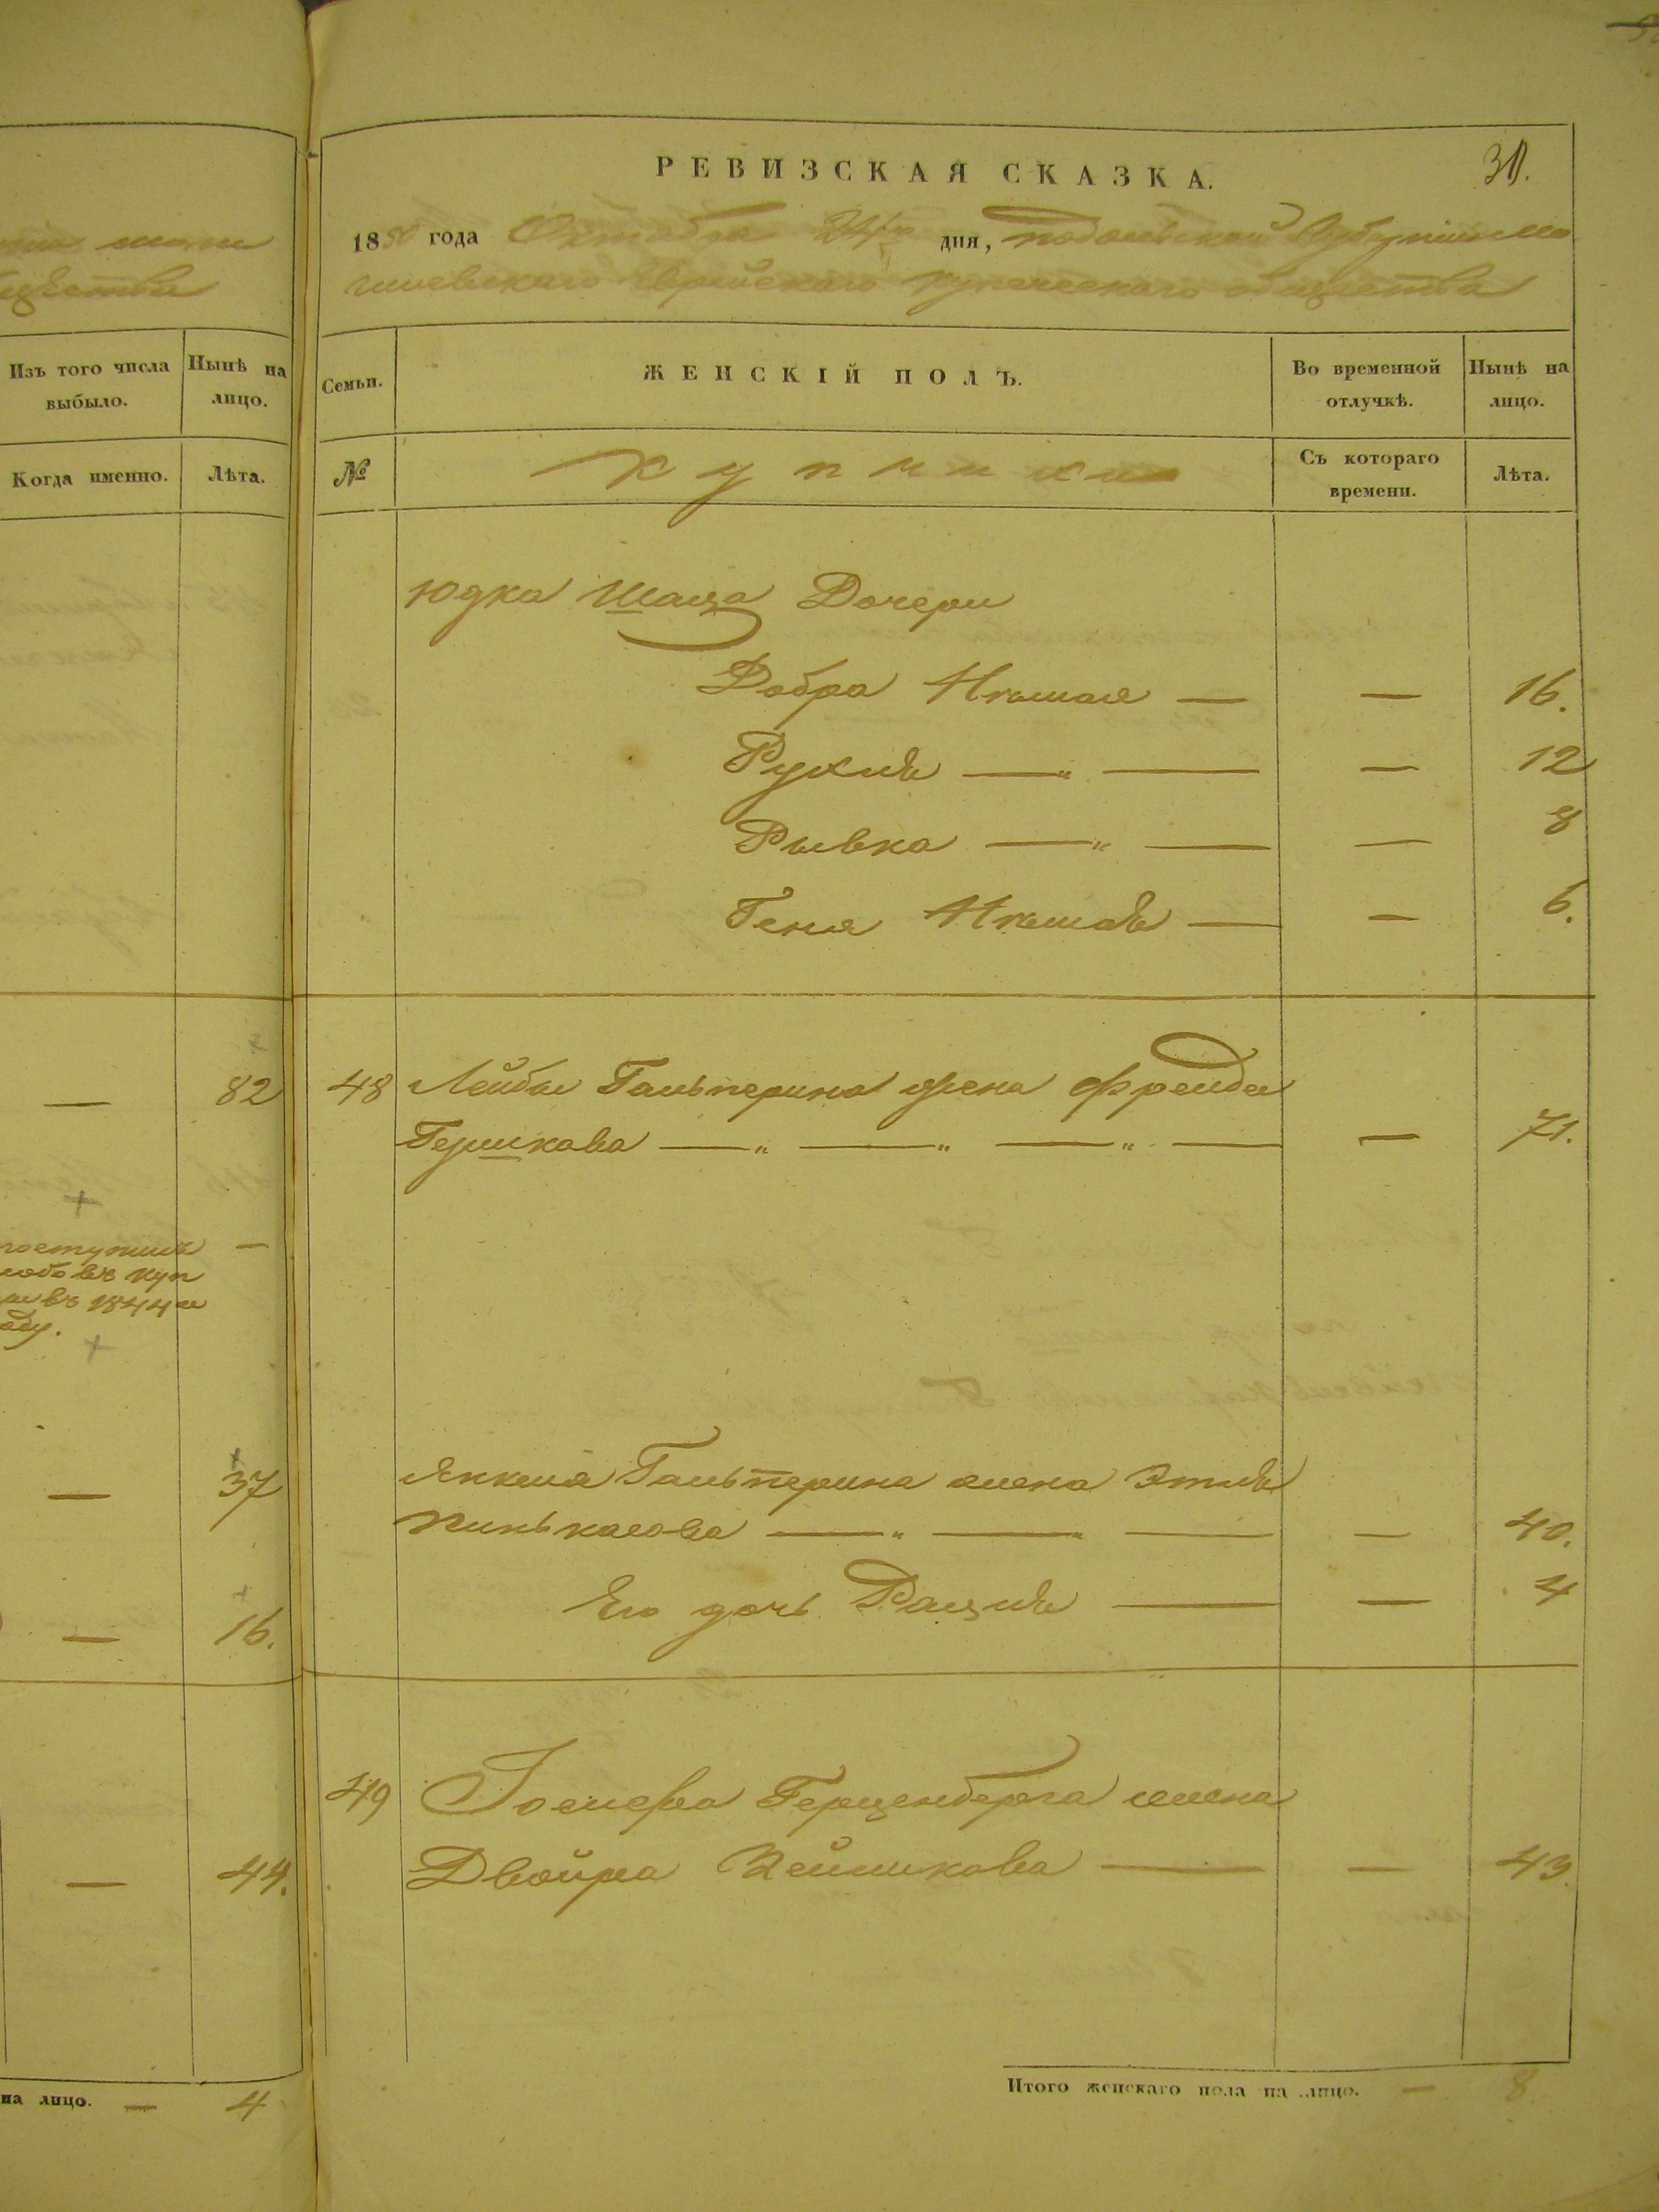 щества
Изъ того числа выбыло.
Нынѣ на лицо.
Когда именно.
Лѣта.
— 82
поступилъ —
въ куп
въ 1844 м
оду.
— 37
— 16.
— 44.
на лицо. — 4
РЕВИЗСКАЯ СКАЗКА.
31.
1850 года Октября 24го дня, Подольской Губерніи Мо
гилевскаго Еврейскаго купеческаго общества
Семьи.
ЖЕНСКІЙ ПОЛЪ.
Во временной отлучкѣ.
Нынѣ на лицо.
№
Купчихи
Съ котораго времени.
Лѣта.
Юдка Шаца Дочери
Добра — — 16.
Рухля — „ — — 12
Рывка — „ — — 8
Геня — — 6.
48 Лейбы Гальперина жена Фрейда
Гершкова — „ — „ — „ — — 71.
Янкеля Гальперина жена Этля
Пинькасова — „ — „ — — 40.
Его дочь — — 4
49 Іосифа Герценберга жена
Двойра — — 43.
Итого женскаго пола на лицо. — 8